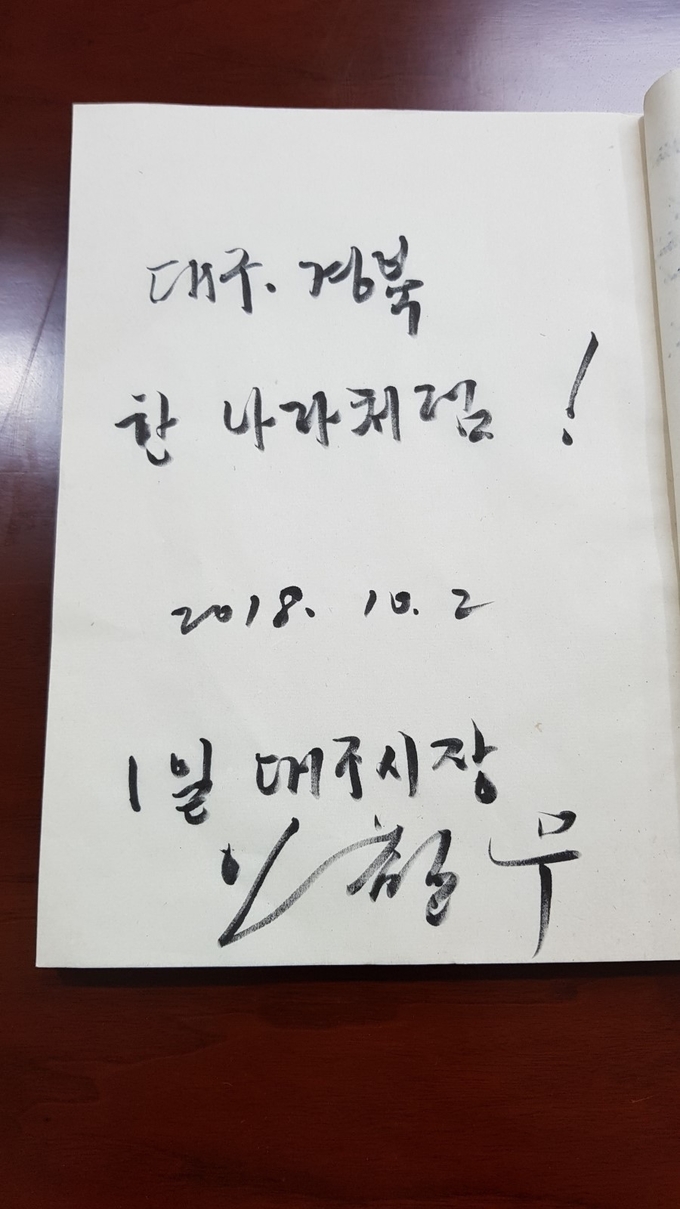 대구. 경북
한 나라처럼 !
2018. 10. 2
1일 대구시장
이철우